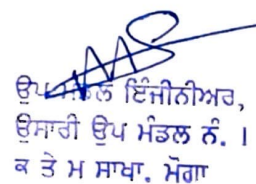 ਉਪ ਮੰਡਲ ਇੰਜੀਨੀਅਰ,
ਉਸਾਰੀ ਉਪ ਮੰਡਲ ਨੰ. 1
ਕ ਤੇ ਮ ਸਾਖਾ. ਮੋਗਾ